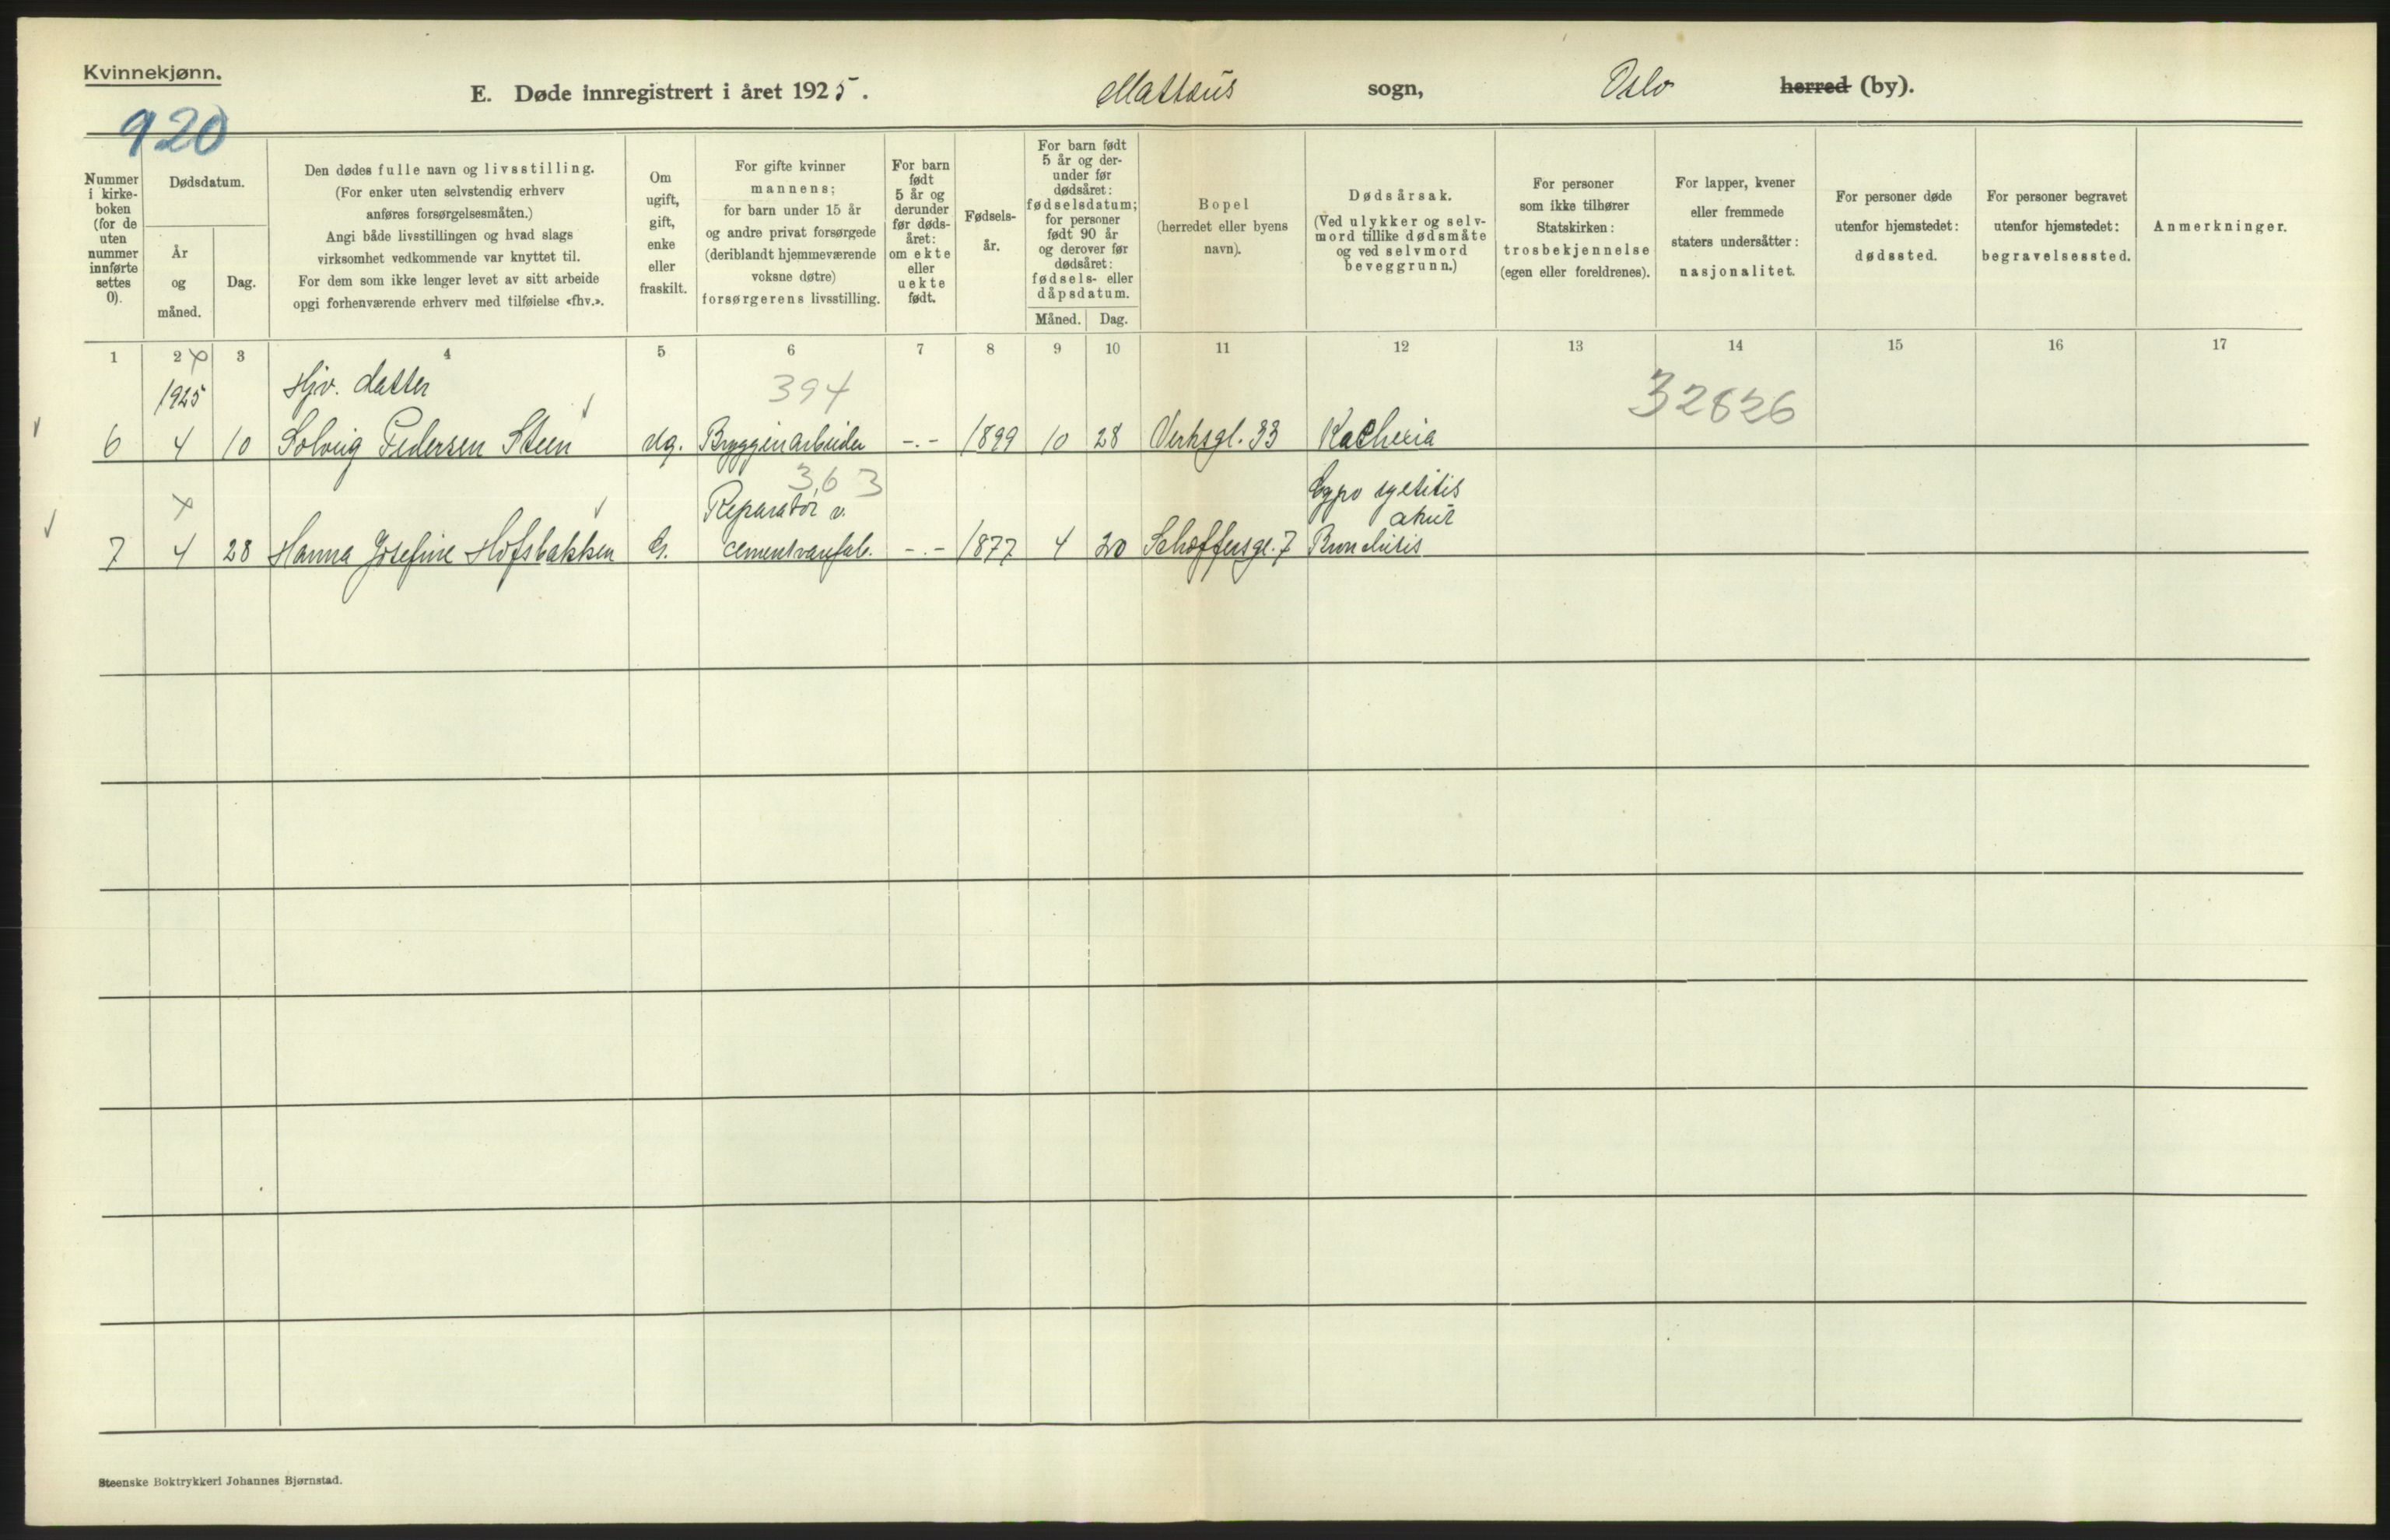 Kvinnekjønn.
E. Døde innregistrert i året 1925. Mattæus sogn, Oslo herred (by).
920
Nummer i kirke- boken (for de uten nummer innførte settes 0).
Dødsdatum.
År og måned.
Dag.
Den dødes fulle navn og livsstilling.
(For enker uten selvstendig erhverv
anføres forsørgelsesmåten.)
Angi både livsstillingen og hvad slags
virksomhet vedkommende var knyttet til.
For dem som ikke lenger levet av sitt arbeide
opgi forhenværende erhverv med tilføielse «fhv.».
Om ugift, gift, enke eller fraskilt.
For gifte kvinner
mannens;
for barn under 15 år
og andre privat forsørgede
(deriblandt hjemmeværende
voksne døtre)
forsørgerens livsstilling.
For barn født 5 år og derunder før døds- året: om ekte eller uekte født.
Fødsels- år.
For barn født
5 år og der-
under før
dødsåret:
fødselsdatum;
for personer
født 90 år
og derover før
dødsåret:
fødsels- eller
dåpsdatum.
Måned. Dag.
Bopel
(herredet eller byens
navn).
Dødsårsak.
(Ved ulykker og selv-
mord tillike dødsmåte
og ved selvmord
beveggrunn.)
For personer
som ikke tilhører
Statskirken:
trosbekjennelse
(egen eller foreldrenes).
For lapper, kvener
eller fremmede
staters undersåtter:
nasjonalitet.
For personer døde
utenfor hjemstedet:
dødssted.
For personer begravet
utenfor hjemstedet:
begravelsessted.
Anmerkninger.
1 2 3 4 5 6 7 8 9 10 11 12 13 14 15 16 17
1925 Hjv. datter 394 32626
6 4 10 Solveig Pedersen Steen Ug. Bryggeriarbeider -.- 1899 10 28 Verksgt. 33 Kachexia
363
Reparatør v.
akut
7 4 28 Hanna Josefine Hofsbakken G. cementvarefab. -.- 1877 4 20 Schæffersgt. 7 Bronchitis
Steenske Boktrykkeri Johannes Bjørnstad.